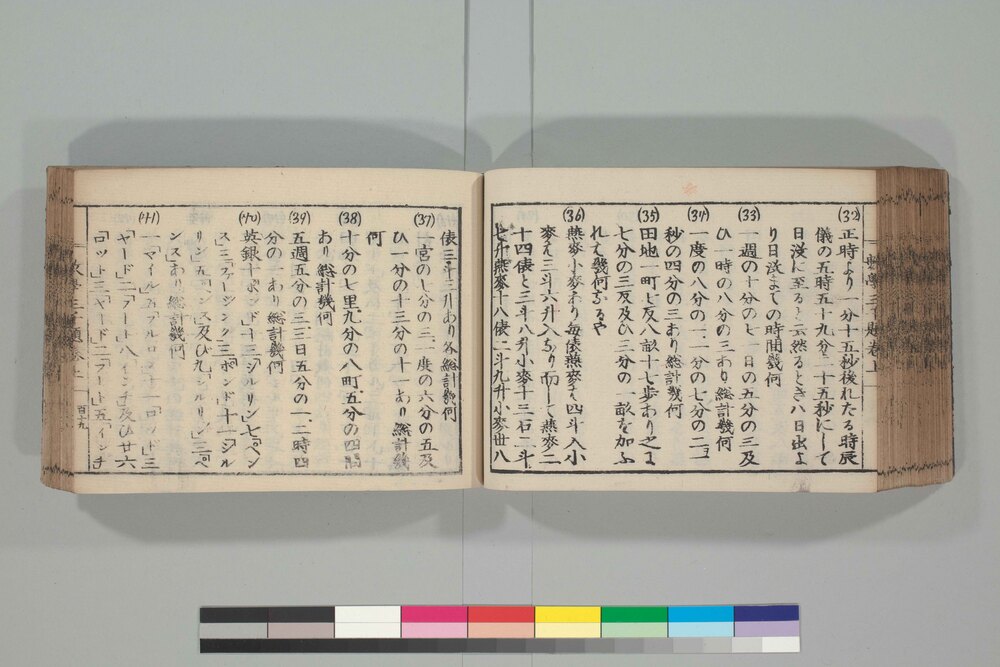 (32)
正時より一分十五秒後れたる時辰
儀の五時五十九分二十五秒にして
日没に至ると云然るときハ日出よ
り日没までの時間幾何
(33)
一週の十分の七一日の五分の三及
ひ一時の八分の三あり総計幾何
(34)
一度の八分の一、一分の七分の二、一
秒の四分の三あり総計幾何
(35)
田地一町七反八畝十七歩あり之に
七分の三反及ひ三分の一畝を加ふ
れて幾何なるや
(36)
燕麥小麥あり毎俵燕麥ハ四斗入小
麥ハ三斗六升入なり而して燕麥二
十四俵と三斗八升小麥十三石二斗
七升燕麥十八俵二斗九升小麥丗八
俵三斗三升あり各総計幾何
(37)
一宮の七分の三、一度の六分の五及
ひ一分の十三分の十一あり総計幾
何
(38)
十分の七里九分の八町五分の四間
あり総計幾何
(39)
五週五分の三三日五分の一、二時四
分の一あり総計幾何
(40)
英銀十「ポンド」十三「シルリン」七「ペン
ス」三「ファージンク」三「ポンド」十一「シル
リン」五「ペンス」及び九「シルリン」三「ペ
ンス」あり総計幾何
(41)
一「マイル」五「フルロング」十一「ロッド」三
「ヤード」二「フート」八「インチ」及ひ廿六
「ロット」三「ヤード」二「フート」五「インチ
數學三千題卷上
百十九